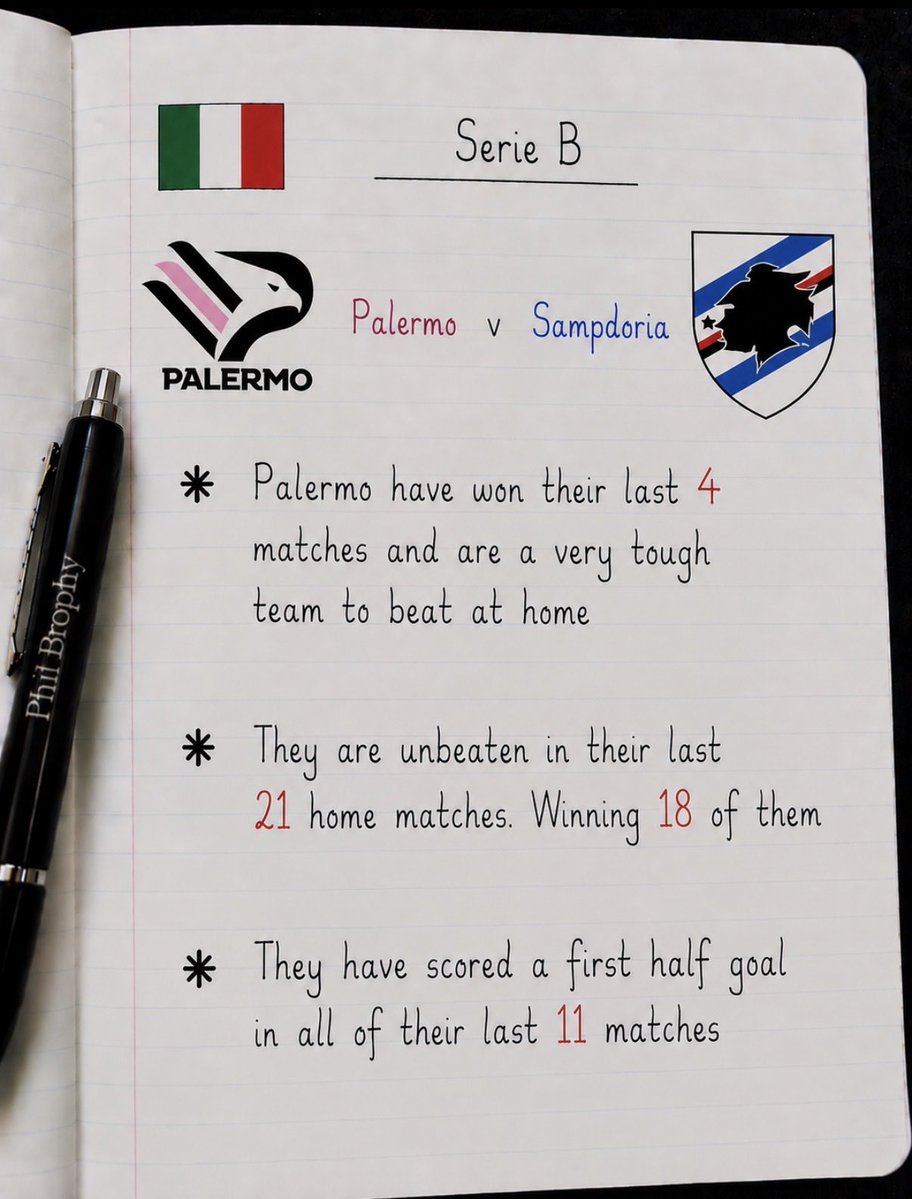 Serie B
PALERMO
Palermo v Sampdoria
* Palermo have won their last 4
matches and are a very tough
team to beat at home
* They are unbeaten in their last
21 home matches. Winning 18 of them
* They have scored a first half goal
in all of their last 11 matches
Phil Brophy